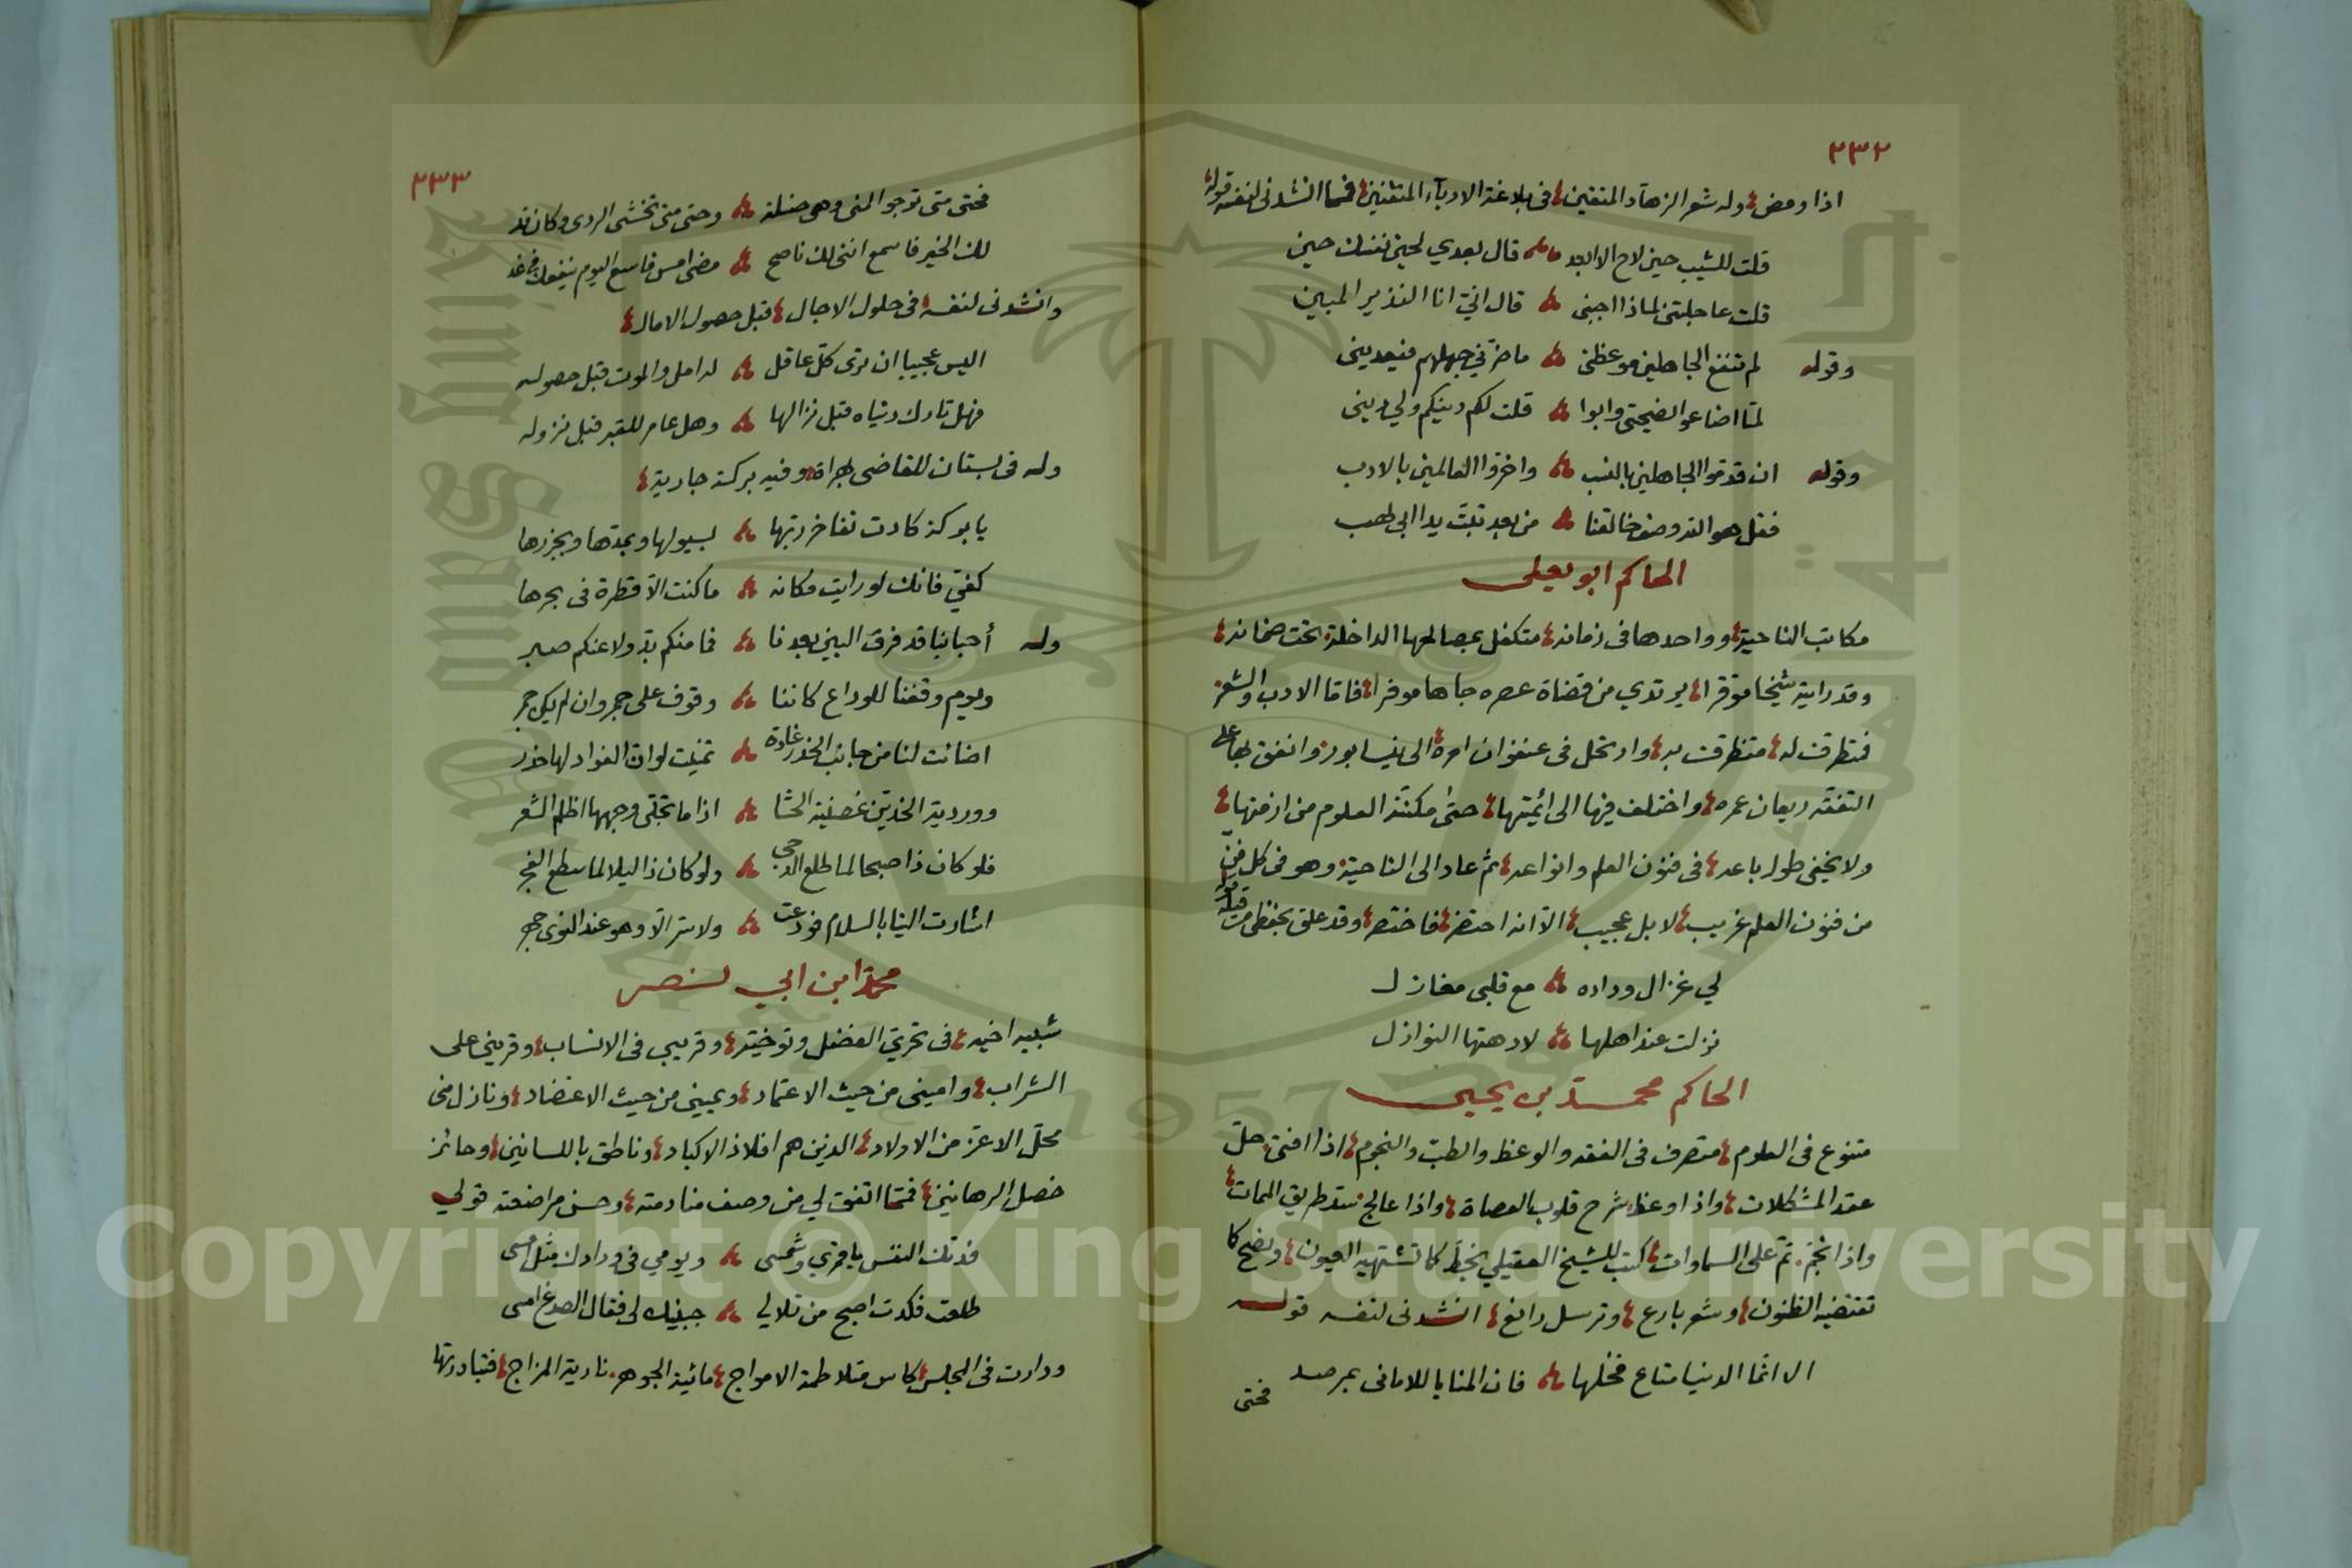 ٢٣٢
اذا ومض وله شعر الزهاد المتقين في بلاغة الادباء المتفننين فمما انشدني لنفسه قوله
قلت للشيب حين لاح الا ابعد قال بعدي لحين نفسك حين
قلت عاجلتني لماذا اجبني قال اني انا النذير المبين
وقوله لم تنفع الجاهلين موعظتي ما ضرني جهلهم فيعديني
لما اضاعوا نصيحتي وابوا قلت لكم دينكم ولي ديني
وقوله ان قدموا الجاهلين بالنسب واخروا العالمين بالادب
فقل هو الله وصف خالقنا من بعد تبت يدا ابي لهب
الحاكم ابو يعلى
مكاتب الناحية وواحدها في زمانه متكفل بمصالحها الداخلة تحت ضمانه
وقد رايته شيخا موقرا يرتدي من قضاة عصره جاها موفرا فاما الادب والشعر
فتظرف له متظرف به وارتحل في عنفوان امره الى نيسابور وانفق بها على
التفقه ريعان عمره واختلف فيها الى ائمتها حتى مكنته العلوم من ازمتها
ولا يخفى طول باعه في فنون العلم وانواعه ثم عاد الى الناحية وهو في كل فن
من فنون العلم غريب لا بل عجيب الا انه احتضر فاختصر وقد علق بحفظي من قوله
لي غزال وداده مع قلبي مغازل
نزلت عند اهلها لا دهتها النوازل
الحاكم محمد بن يحيى
متنوع في العلوم متصرف في الفقه والوعظ والطب والنجوم اذا افتى حل
عقد المشكلات واذا وعظ شرح قلوب العصاة واذا عالج سد طريق الممات
واذا نجم نم على السماوات كتب للشيخ العقيلي بخط كما تشتهيه العيون ونصح كما
تقتضيه الظنون وشعر بارع وترسل رائع انشدني لنفسه قوله
الا انما الدنيا متاع فخلها فان المنايا للاماني بمرصد
فحتى
٢٣٣
فحتى متى ترجو المنى وهي ضلة وحتى متى تخشى الردى وكان قد
لك الخير فاسمع انني لك ناصح مضى امس فاسع اليوم ينفعك في غد
وانشدني لنفسه في حلول الاجال قبل حصول الامال
اليس عجيبا ان ترى كل عاقل له امل والموت قبل حصوله
فهل تارك دنياه قبل نزالها وهل عامر للقبر قبل نزوله
وله في بستان للقاضي بهراة وفيه بركة جارية
يا بركة كادت تفاخر ربها بسيولها وبمدها وبجزرها
كفي فانك لو رايت مكانه ما كنت الا قطرة في بحرها
وله أحبابنا قد فرق البين بعدنا فما منكم بد ولا عنكم صبر
ويوم وقفنا للوداع كاننا وقوف على جمر وان لم يكن جمر
اضائت لنا من جانب الخدر غادة تمنيت لو ان الفواد لها خدر
ووردية الخدين غصنية الحشا اذا ما تجلى وجهها اظلم الشعر
فلو كان ذا صبحا لما طلع الدجى ولو كان ذا ليلا لما سطع الفجر
اشارت الينا بالسلام فودعت ولا ستر الا وهو عند النوى جهر
محمد ابن ابي نصر
شبيه اخيه في تحري الفضل وتوخيه وقريبي في الانساب وقريني على
الشراب واميني من حيث الاعتماد ويميني من حيث الاعتضاد ونازل مني
محل الاعز من الاولاد الذين هم افلاذ الاكباد وناطق باللسانين وحائز
خصل الرهانين فمما اتفق لي من وصف منادمته وحسن مراضعته قولي
فدتك النفس يا قمري وشمسي ويومي في ودادك مثل امسى
طلعت فكدت اصبح من تلالي جبينك لي فقال الصدغ امسى
ودارت في المجلس كاس متلاطمة الامواج مائية الجوهر نارية المزاج فتبادرتها